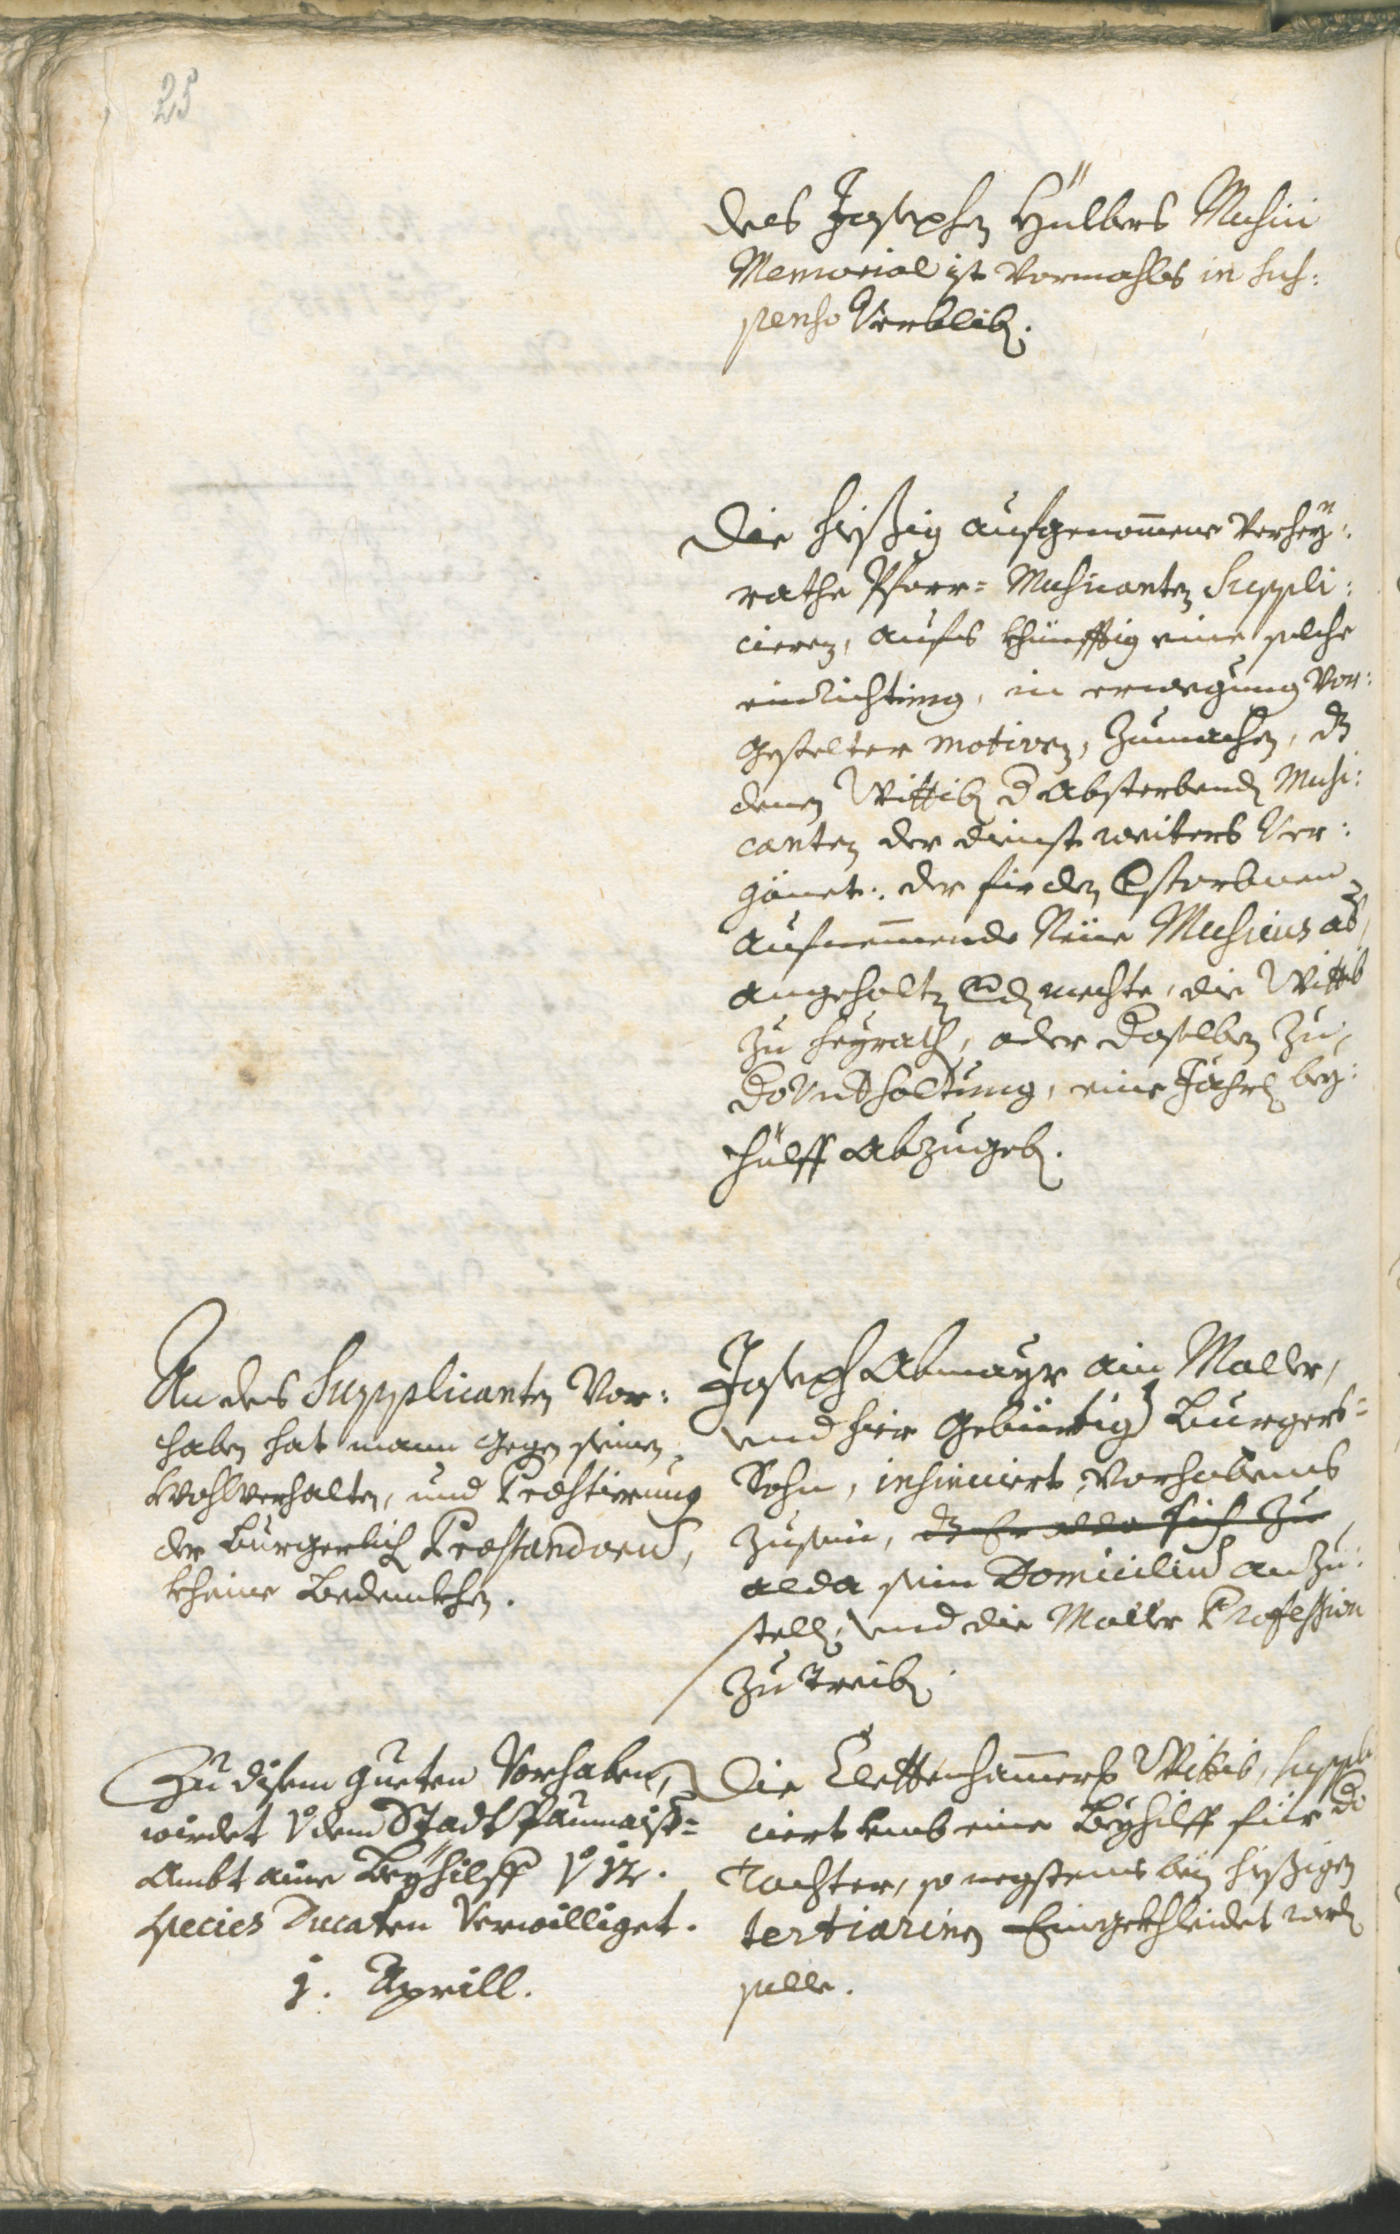 25
des Josephen Hülbers Musici
Memorial ist vormahls in sus:
penso verblib.
Die hießig aufgenommene verhey:
rathe Pfarr= Musicanten Suppli:
cieren, aufs khünfftig eine solche
einrichtung, in erwegung vor:
gestelter motiven, zumachen, dz
denen Wittib d absterbend Musi:
canten der dienst weiters ver:
gönet: der für den Estorbnen
aufnemmende Neüe Musicus
angehalten werd mechte, die Wittib
zu heyrath, oder derselben zu
do Vnthaltung, eine Jährl bey:
hülff abzugeb.
An des Supplicanten Vor:
haben hat mann gegen seinen
Wohlverhalten, und Præstierung
der Burgerlich Præstandorum,
kheine Bedenkhen.
Joseph Abmayr ain Maller,
und hier gebürtig Burgers=
Sohn, insinuiert, Vorhabens
zusein, dz Er alda sich zu
alda sein Domicilium anzu:
stell, und die Maller Profession
zu treib.
Zu disem gueten Vorhaben,
wirdet v dem Stadt Paumaist=
Ambt aine Beyhilff v 12.
species Ducaten Verwilliget.
1. Aprill.
Die Clettenhammers Wittib, suppli
ciert umb eine Beyhilff für do
Tochter, so negstens bey hießigen
tertiarinen Eingekhleidet werd
solle.